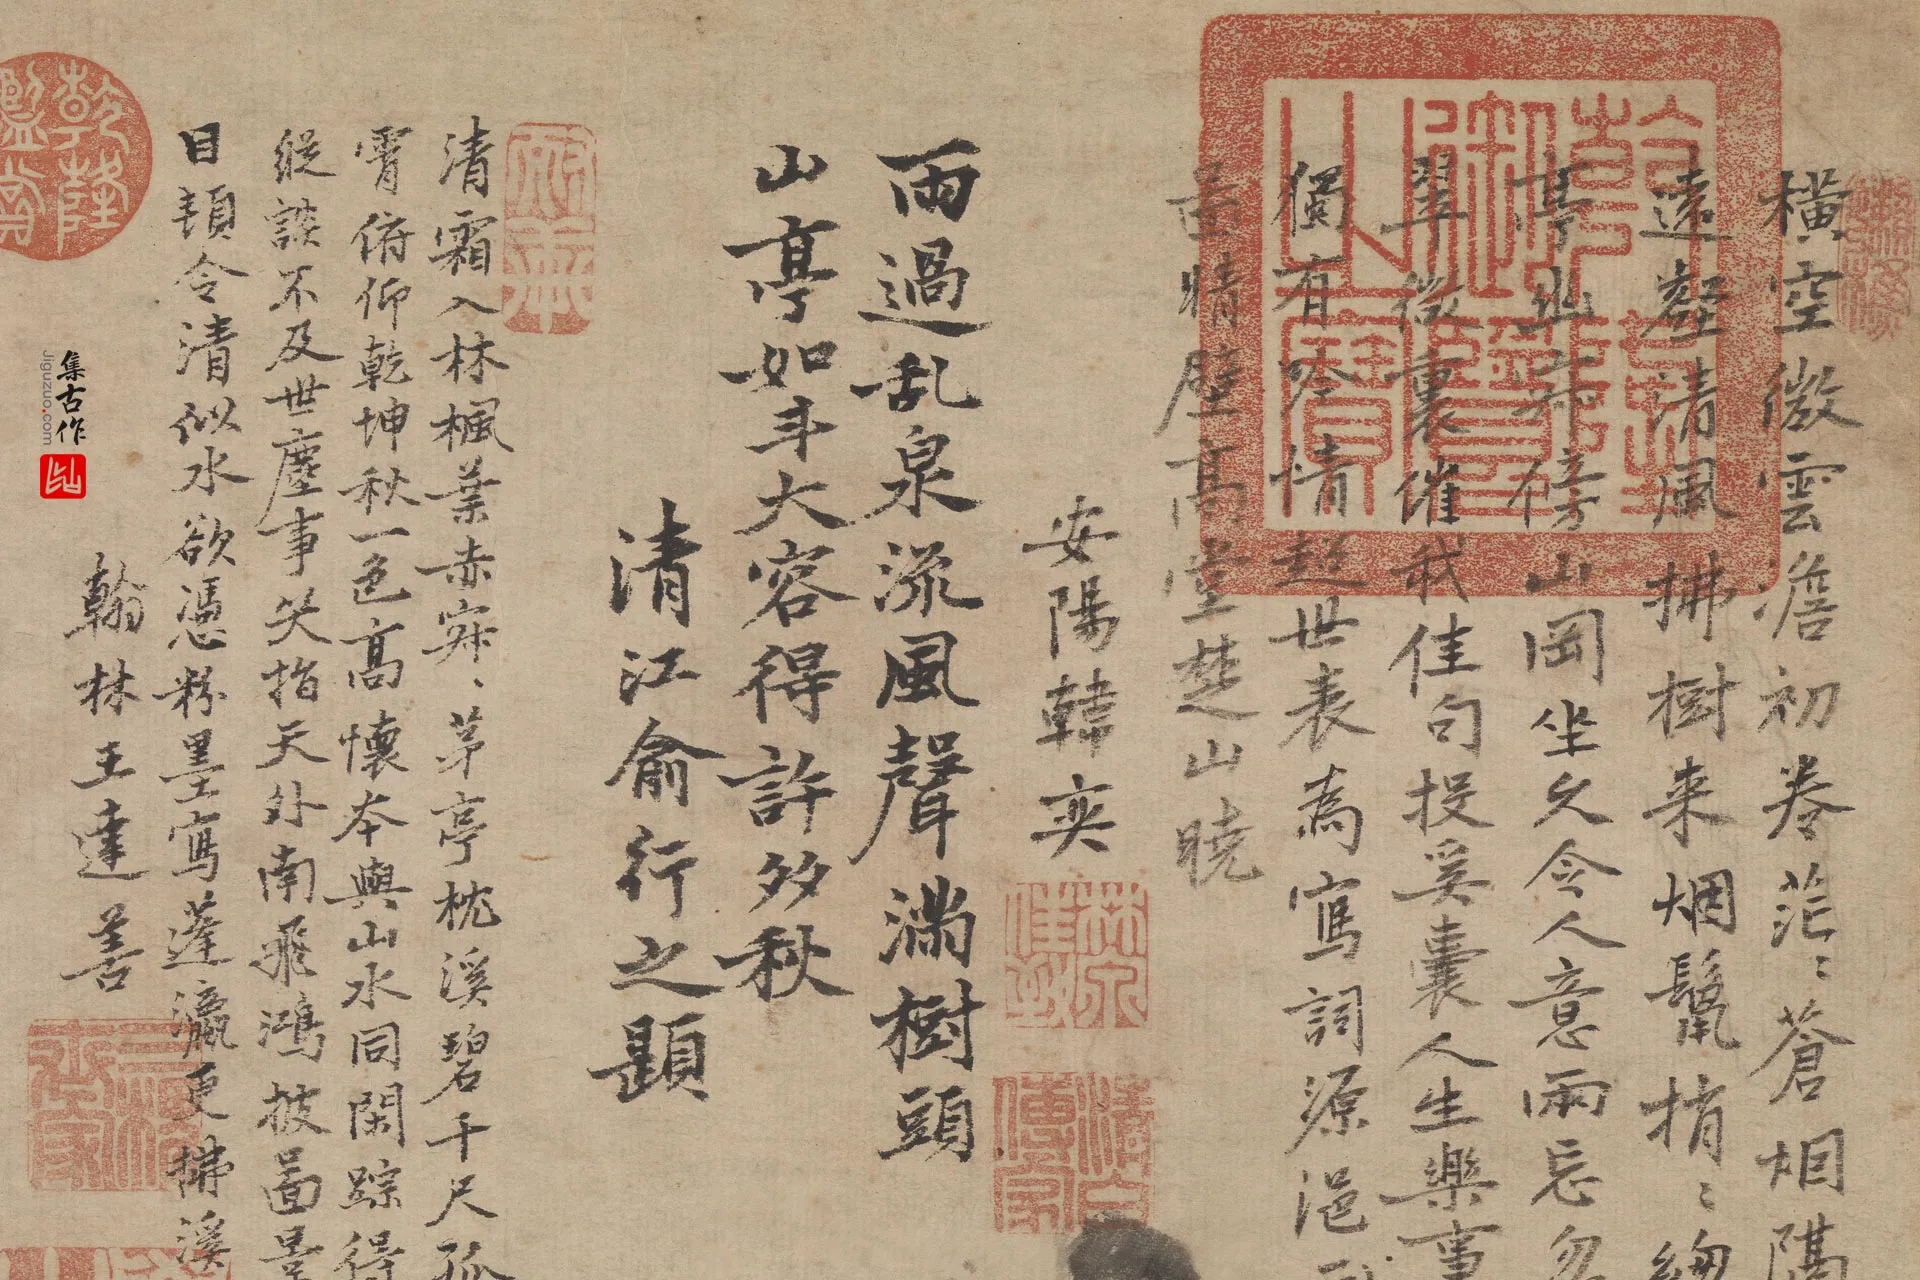 橫空微雲澹初卷茫〻蒼烟隔
遠壑清風拂樹来烟鬟梢〻
亭幽寂傍山岡坐久令人意雨忘忽
翠微裏催我佳句投奚囊人生樂事
獨有吟情超世表為寫詞源浥
啚晴壁高堂楚山曉
安陽韓奕
雨過乱泉流風聲滿樹頭
山亭如斗大容得許多秋
清江俞行之題
清霜入林楓葉赤寂〻茅亭枕溪碧千尺孤
霄俯仰乾坤秋一色高懷本與山水同閑踪得
縱談不及世塵事笑指天外南飛鴻披啚景
目頓令清似水欲憑粉墨寫蓬瀛更拂溪
翰林王達善
乾隆御覽之寶
乾隆鑑賞
集古作
Jiguzuo.com